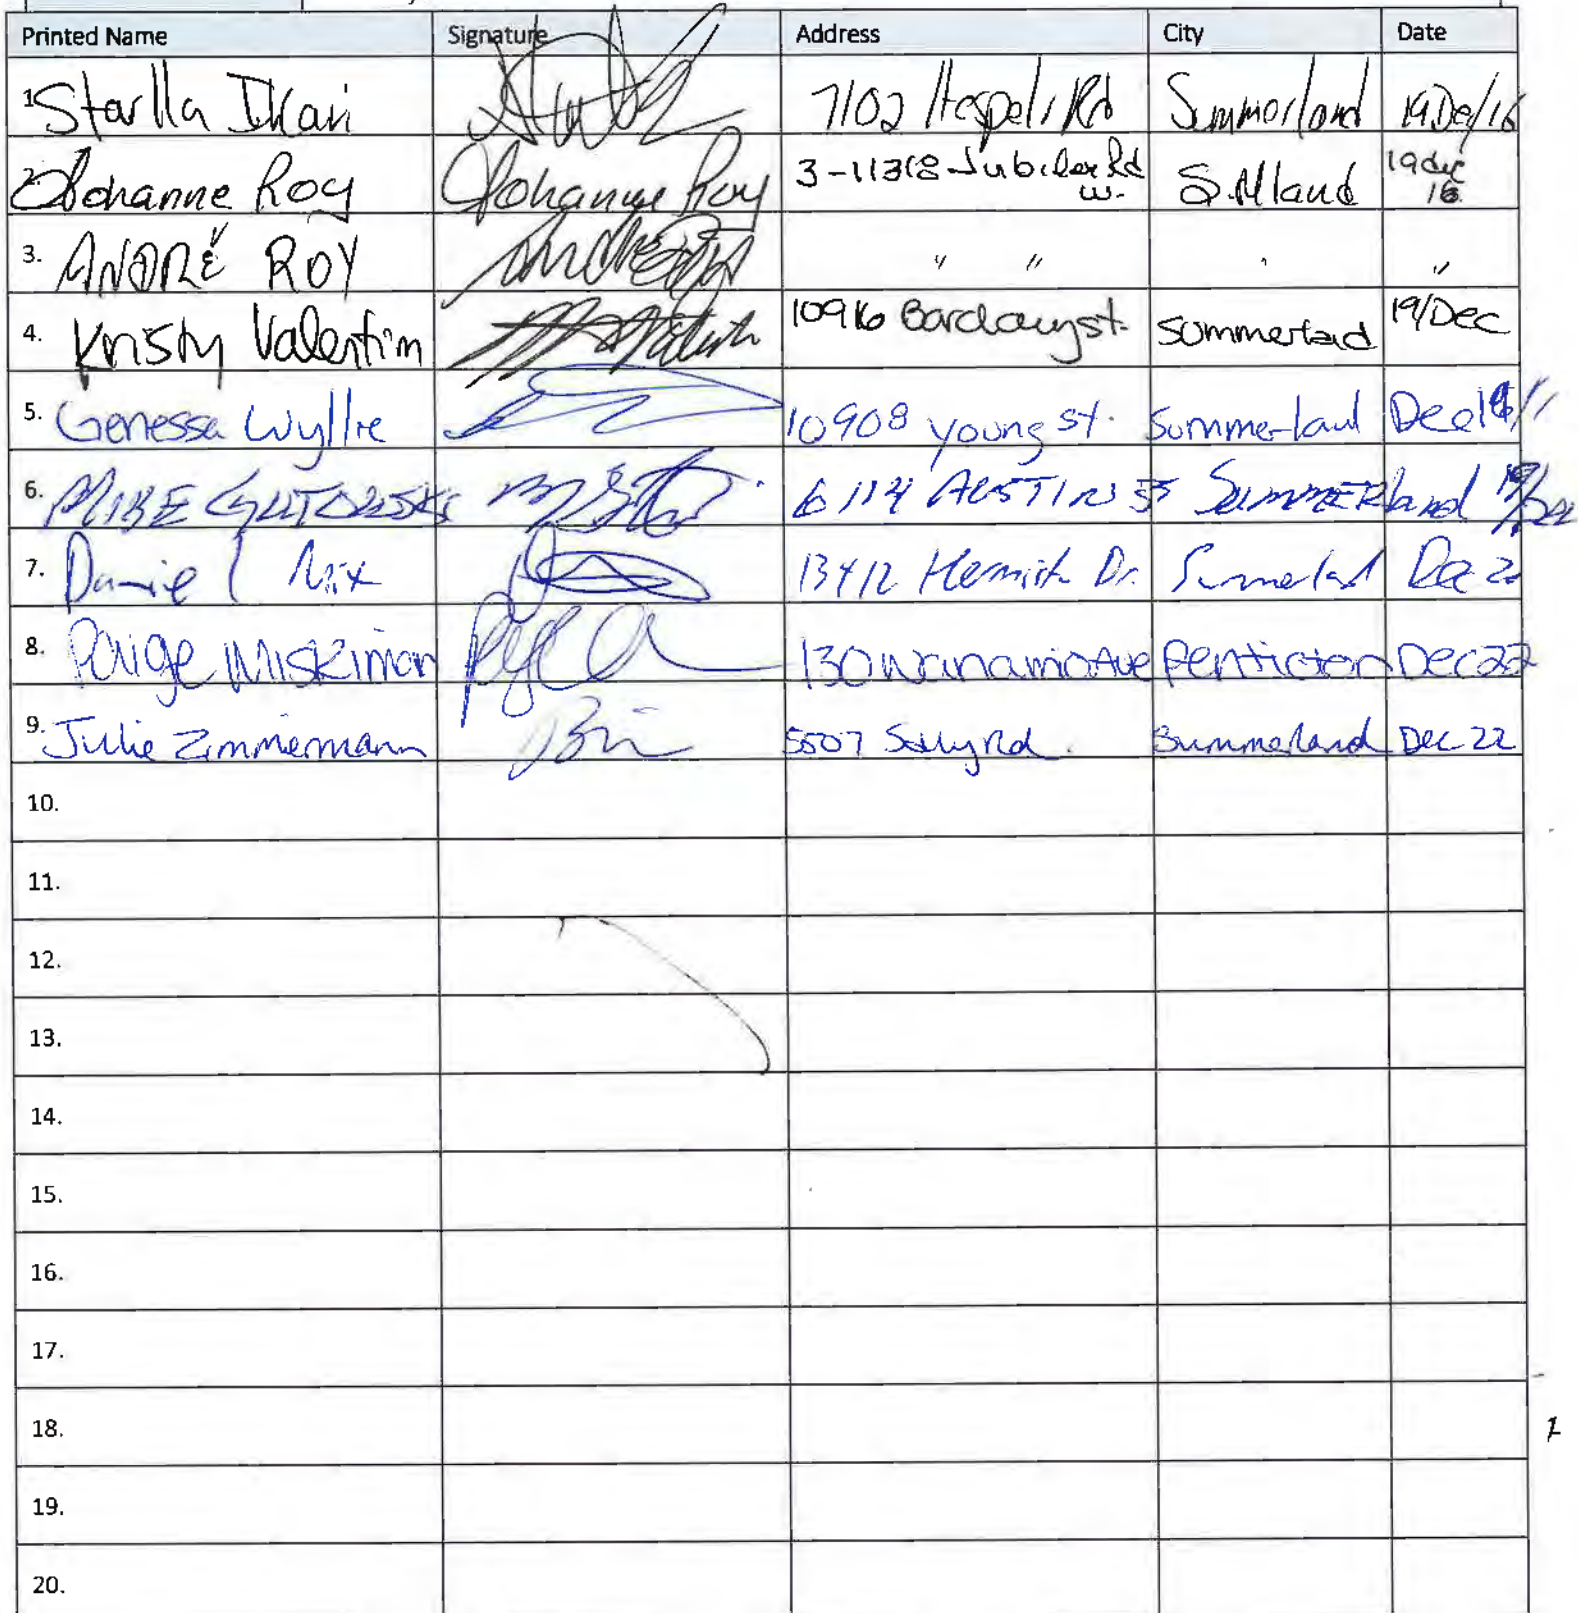 Printed Name Signature Address City Date
1. Starlla Ikari 7102 Hespeli Rd Summerland 19 De/16
2. Johanne Roy Johanne Roy 3-11318 Jubilee Rd W. S.Mland 19 dec 16
3. ANDRÉ ROY " " " "
4. Kristy Valentim 10916 Barclay st. Summerland 19/Dec
5. Genessa Wyllie 10908 young st. Summerland Dec
6. MIKE 6114 AUSTIN ST SUMMERland 19/Dec
7. Daniel Nix 13412 Dr. Summerland Dec 22
8. Paige Miskiman 130 Nanaimo Ave Penticton Dec 22
9. Julie Zimmermann 5507 Rd. Summerland Dec 22
10.
11.
12.
13.
14.
15.
16.
17.
18.
19.
20.